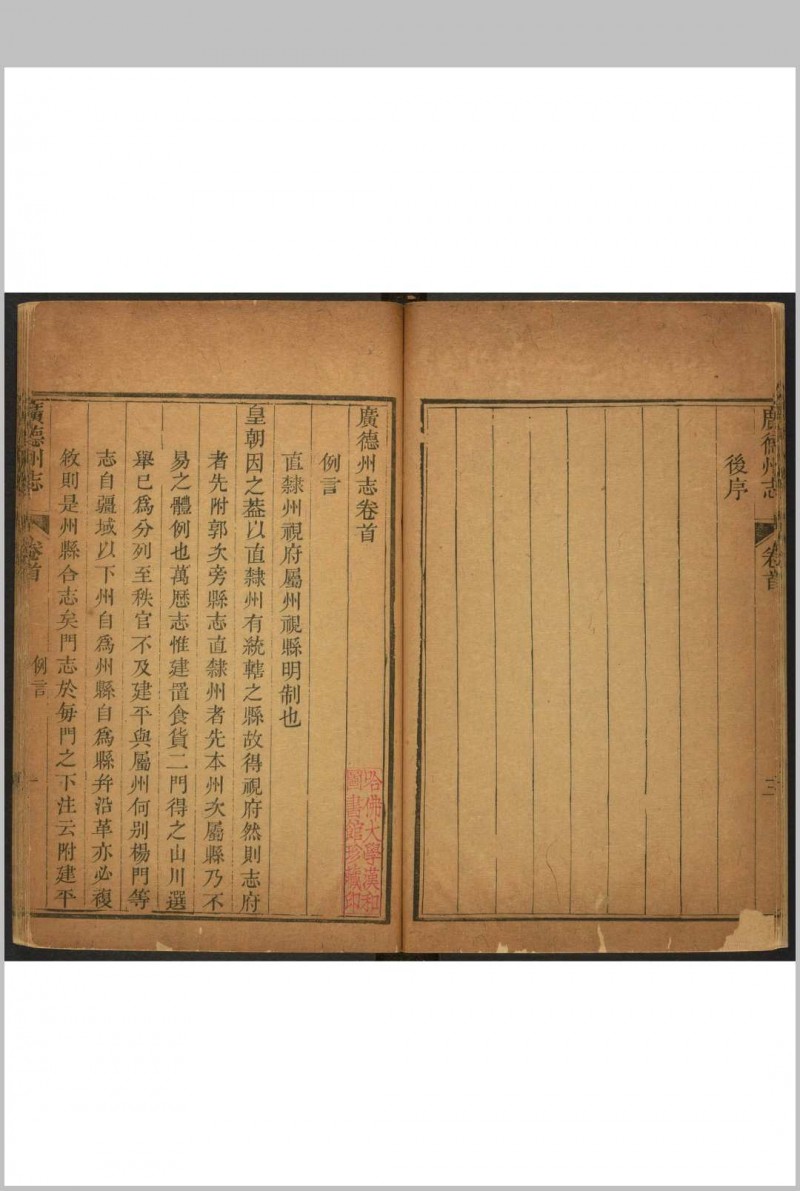 廣德州志
卷首
後序
三
廣德州志卷首
例言
直隸州視府屬州視縣明制也
皇朝因之葢以直隸州有統轄之縣故得視府然則志府
者先附郭次旁縣志直隸州者先本州次屬縣乃不
易之體例也萬歷志惟建置食貨二門得之山川選
舉已爲分列至秩官不及建平與屬州何别楊門等
志自疆域以下州自爲州縣自爲縣弁沿革亦必複
敘則是州縣合志矣門志於每門之下注云附建平
廣德州志
卷首
例言
一
哈佛大學漢和
圖書館珍藏印